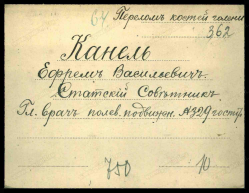 64 Перелом костей голени
362
Канель
Ефремъ Васильевич.
Статскій Совѣтникъ
Гл. врач полев. подвижн. № 329 госп.
750 10